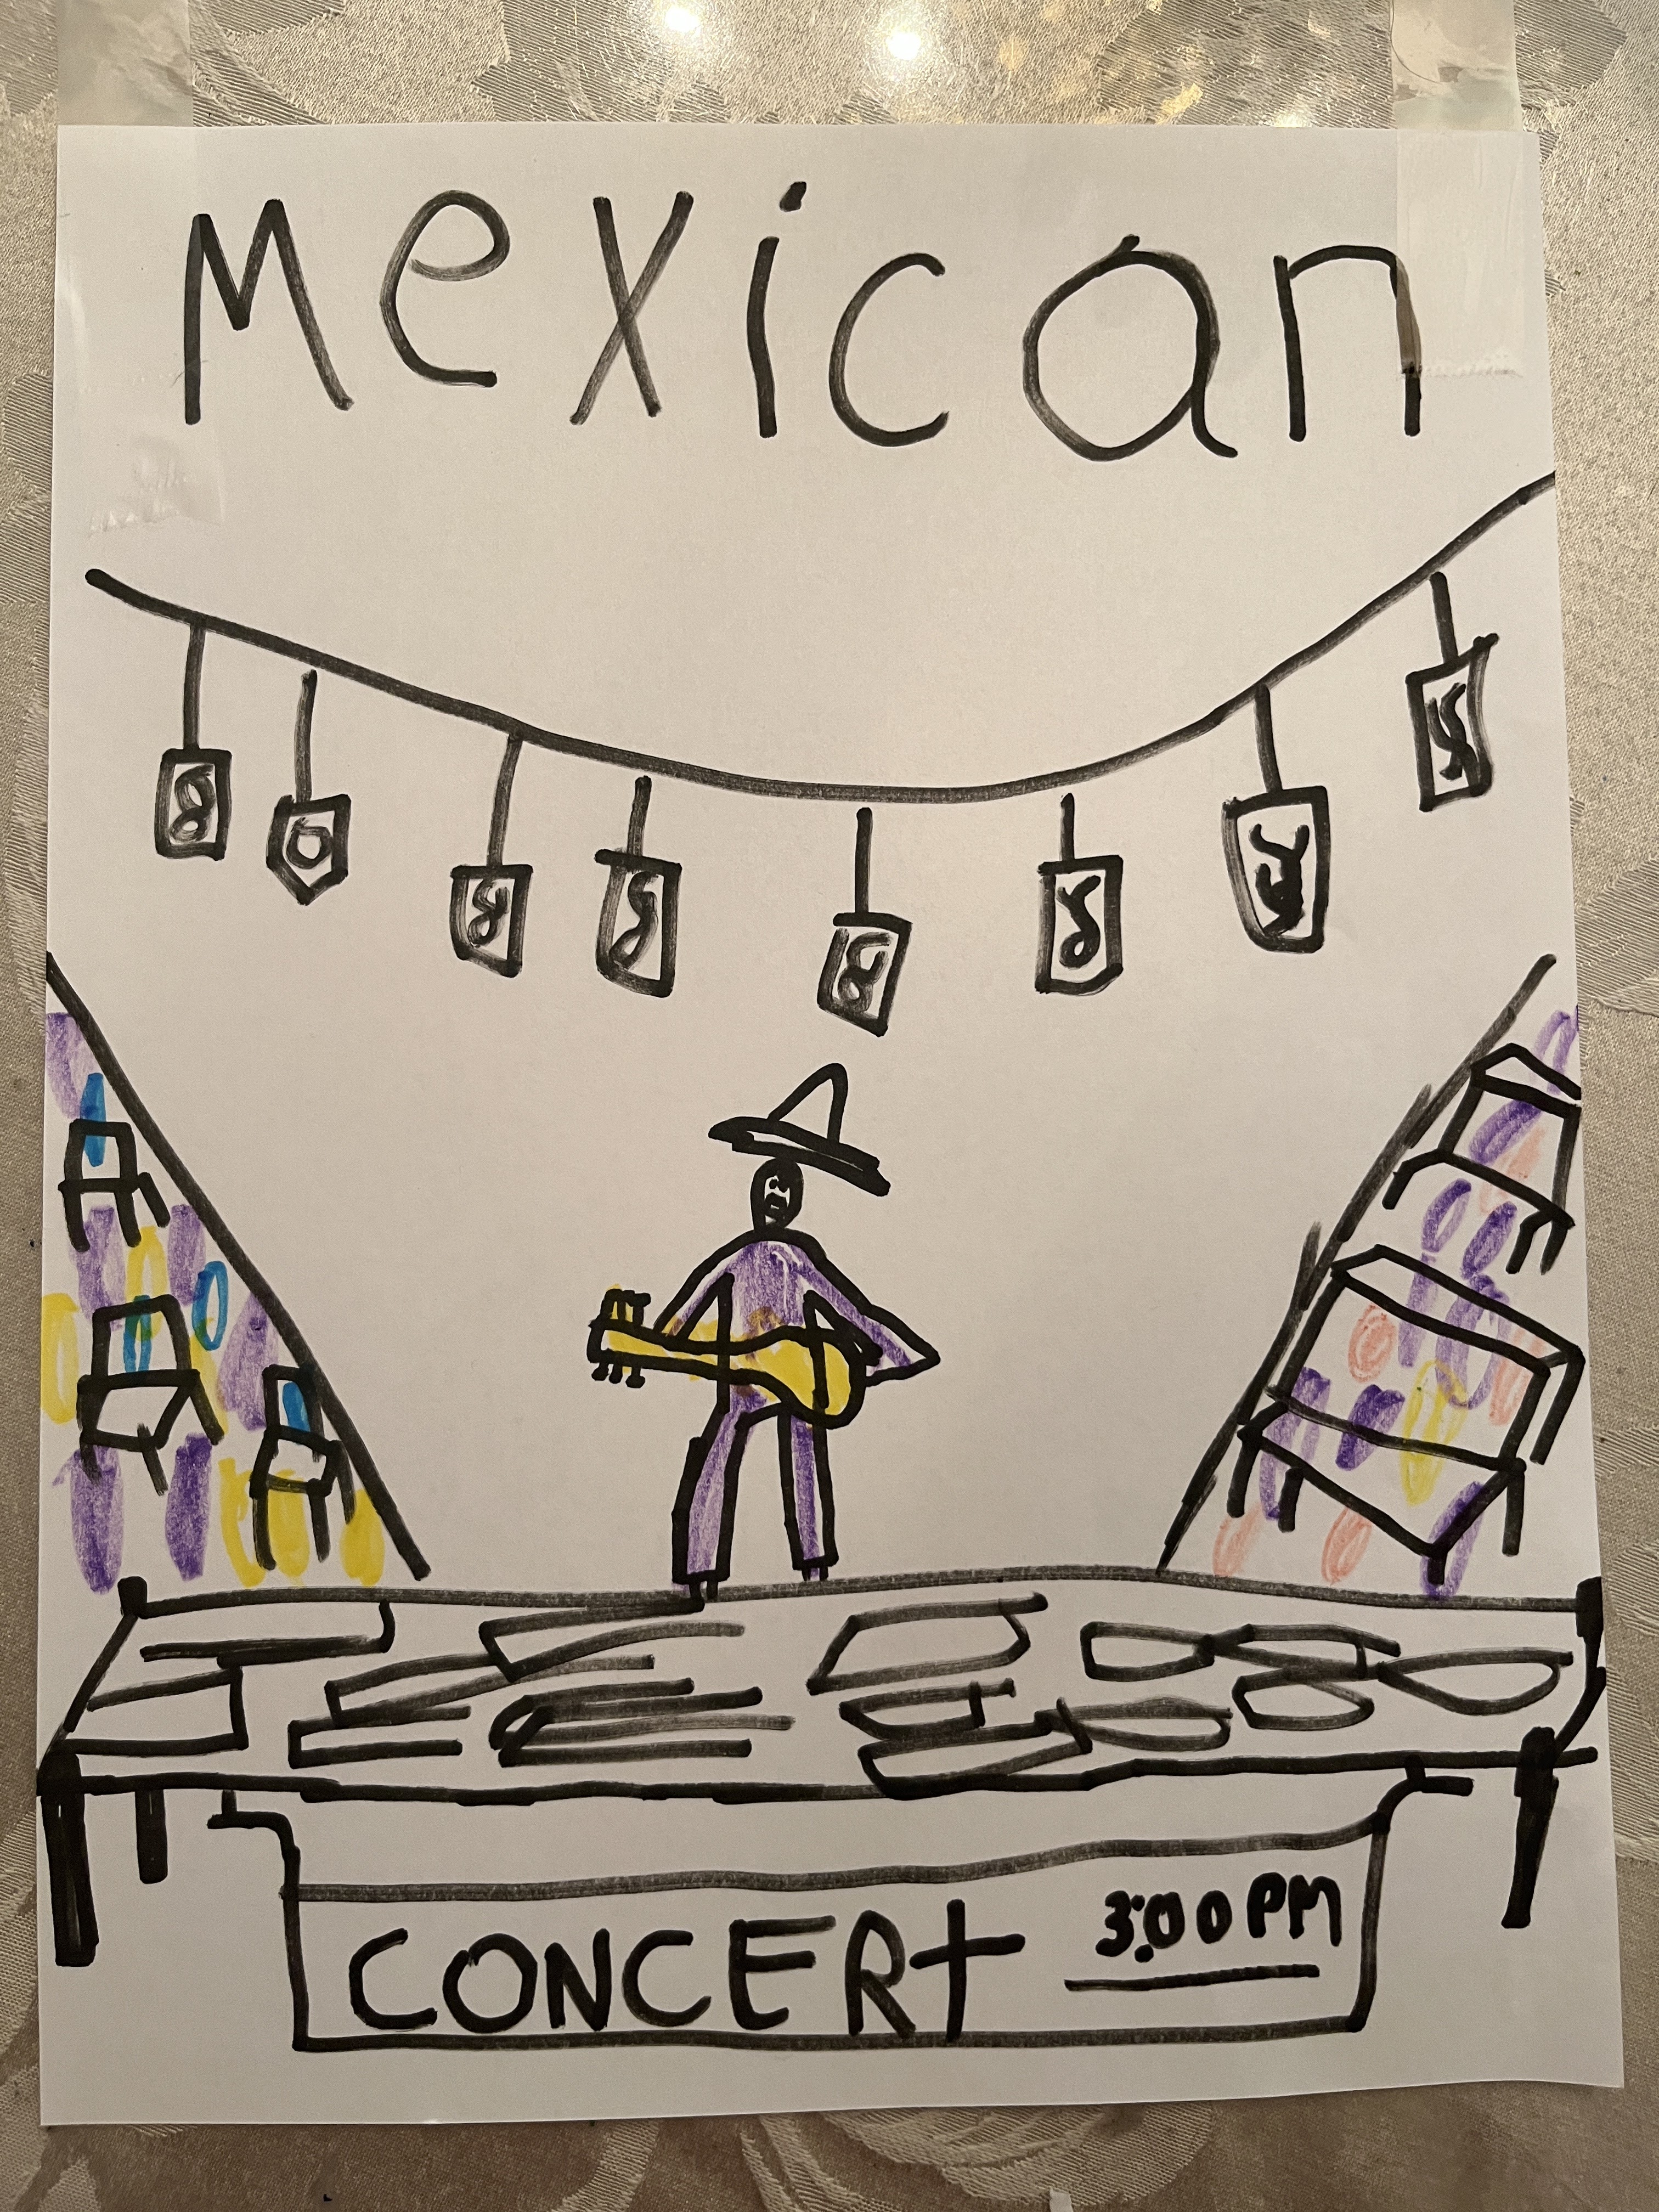 Mexican
CONCERt 3:00 PM